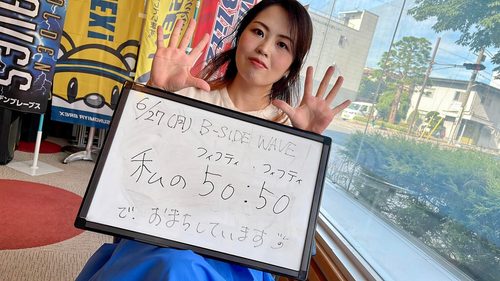 6/27(月) B-SIDE WAVE!
フィフティ フィフティ
私の 50:50
で、おまちしています